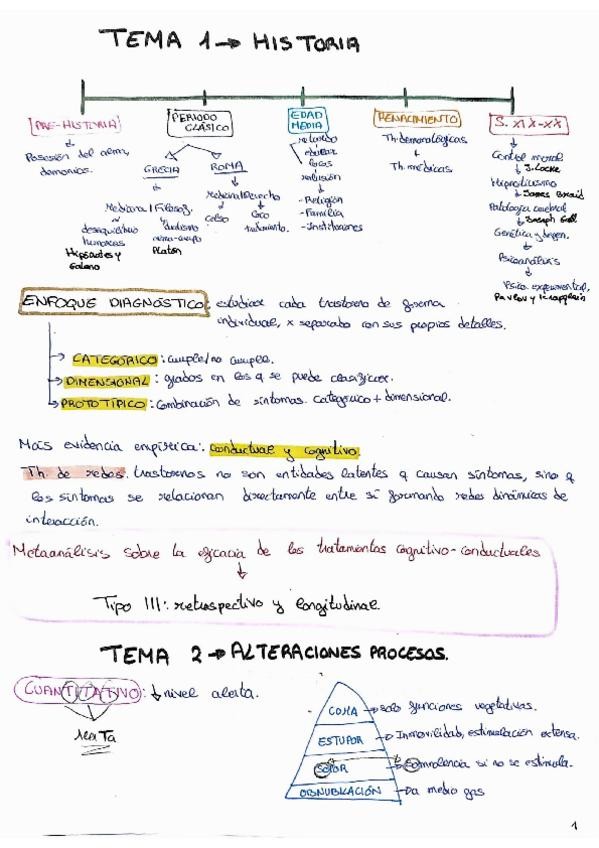 TEMA 1 → HISTORIA
PRE-HISTORIA
Posesión del alma,
demonios.
PERIODO
CLÁSICO
GRECIA
Medicina / Filosof.
desequilibrio
humores
Hipócrates y
Galeno
dualismo
Platón
ROMA
Medicina Derecho
Celso
tratamiento.
EDAD
MEDIA
locos
reclusión
- Religión
- Familia
- Instituciones
RENACIMIENTO
Th. demonológicas
+
Th. médicas
S. XIX-XX
Control moral
J. Locke
Hipnotismo
James Braid
Patología cerebral
Joseph Gall
Genética y degen.
Psicoanálisis
Psico. experimental.
Pavlov y Kraepelin
ENFOQUE DIAGNÓSTICO: estudiar cada trastorno de forma
individual, x separado con sus propios detalles.
→ CATEGÓRICO: cumple/no cumple.
→ DIMENSIONAL: grados en los q se puede clasificar.
→ PROTOTÍPICO: Combinación de síntomas. Categórico + dimensional.
Más evidencia empírica: conductual y cognitivo.
Th. de redes. trastornos no son entidades latentes q causan síntomas, sino q
los síntomas se relacionan directamente entre sí formando redes dinámicas de
interacción.
Metaanálisis sobre la eficacia de los tratamientos cognitivo-conductuales
Tipo III: retrospectivo y longitudinal.
TEMA 2 → ALTERACIONES PROCESOS.
CUANTITATIVO: ↓ nivel alerta.
COMA → solo funciones vegetativas.
ESTUPOR → Inmovilidad, estimulación extensa.
SOPOR → Somnolencia si no se estimula.
OBNUBILACIÓN → a medio gas
1